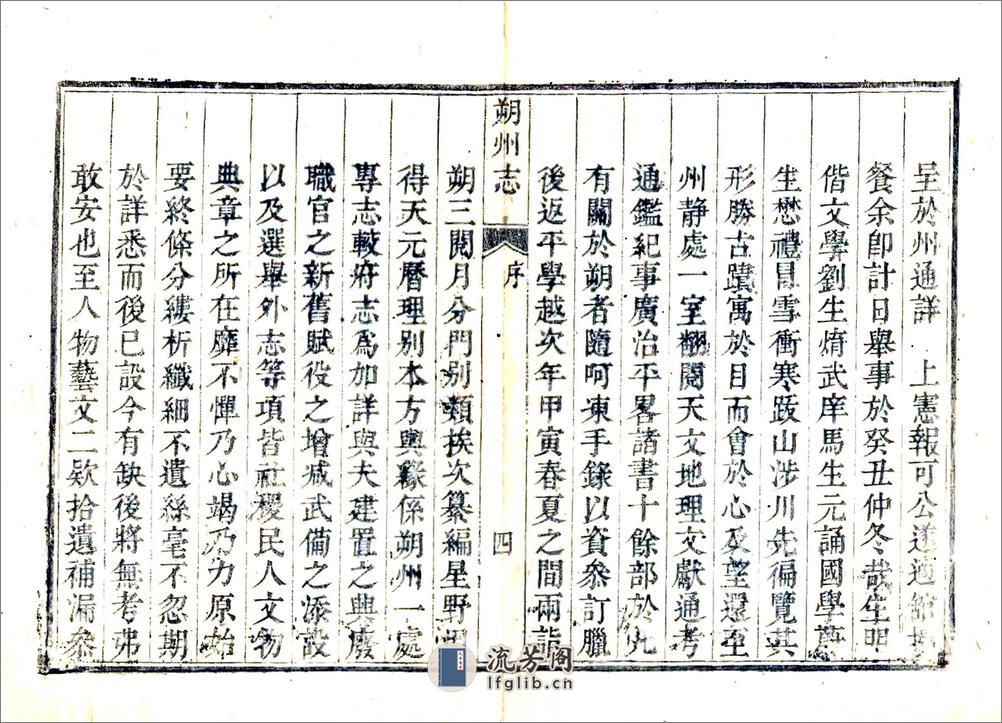 呈於州通詳　上憲報可公遂適館授
餐余即計日舉事於癸丑仲冬哉生明
偕文學劉生焴武庠馬生元誦國學
生懋禮冒雪衝寒跋山涉川先徧覽其
形勝古蹟寓於目而會於心及望還至
州静處一室翻閱天文地理文獻通考
通鑑紀事廣治平畧諸書十餘部於凡
有關於朔者隨呵凍手錄以資叅訂臘
後返平學越次年甲寅春夏之間兩詣
朔州志
序
四
朔三閱月分門别類挨次纂編星野
得天元曆理别本方輿緣係朔州一處
專志較府志爲加詳與夫建置之興廢
職官之新舊賦役之增减武備之添設
以及選舉外志等項皆社稷民人文物
典章之所在靡不憚乃心竭乃力原始
要終條分縷析纖細不遺絲毫不忽期
於詳悉而後已設今有缺後將無考弗
敢安也至人物藝文二欵拾遺補漏叅
流芳閣
lfglib.cn